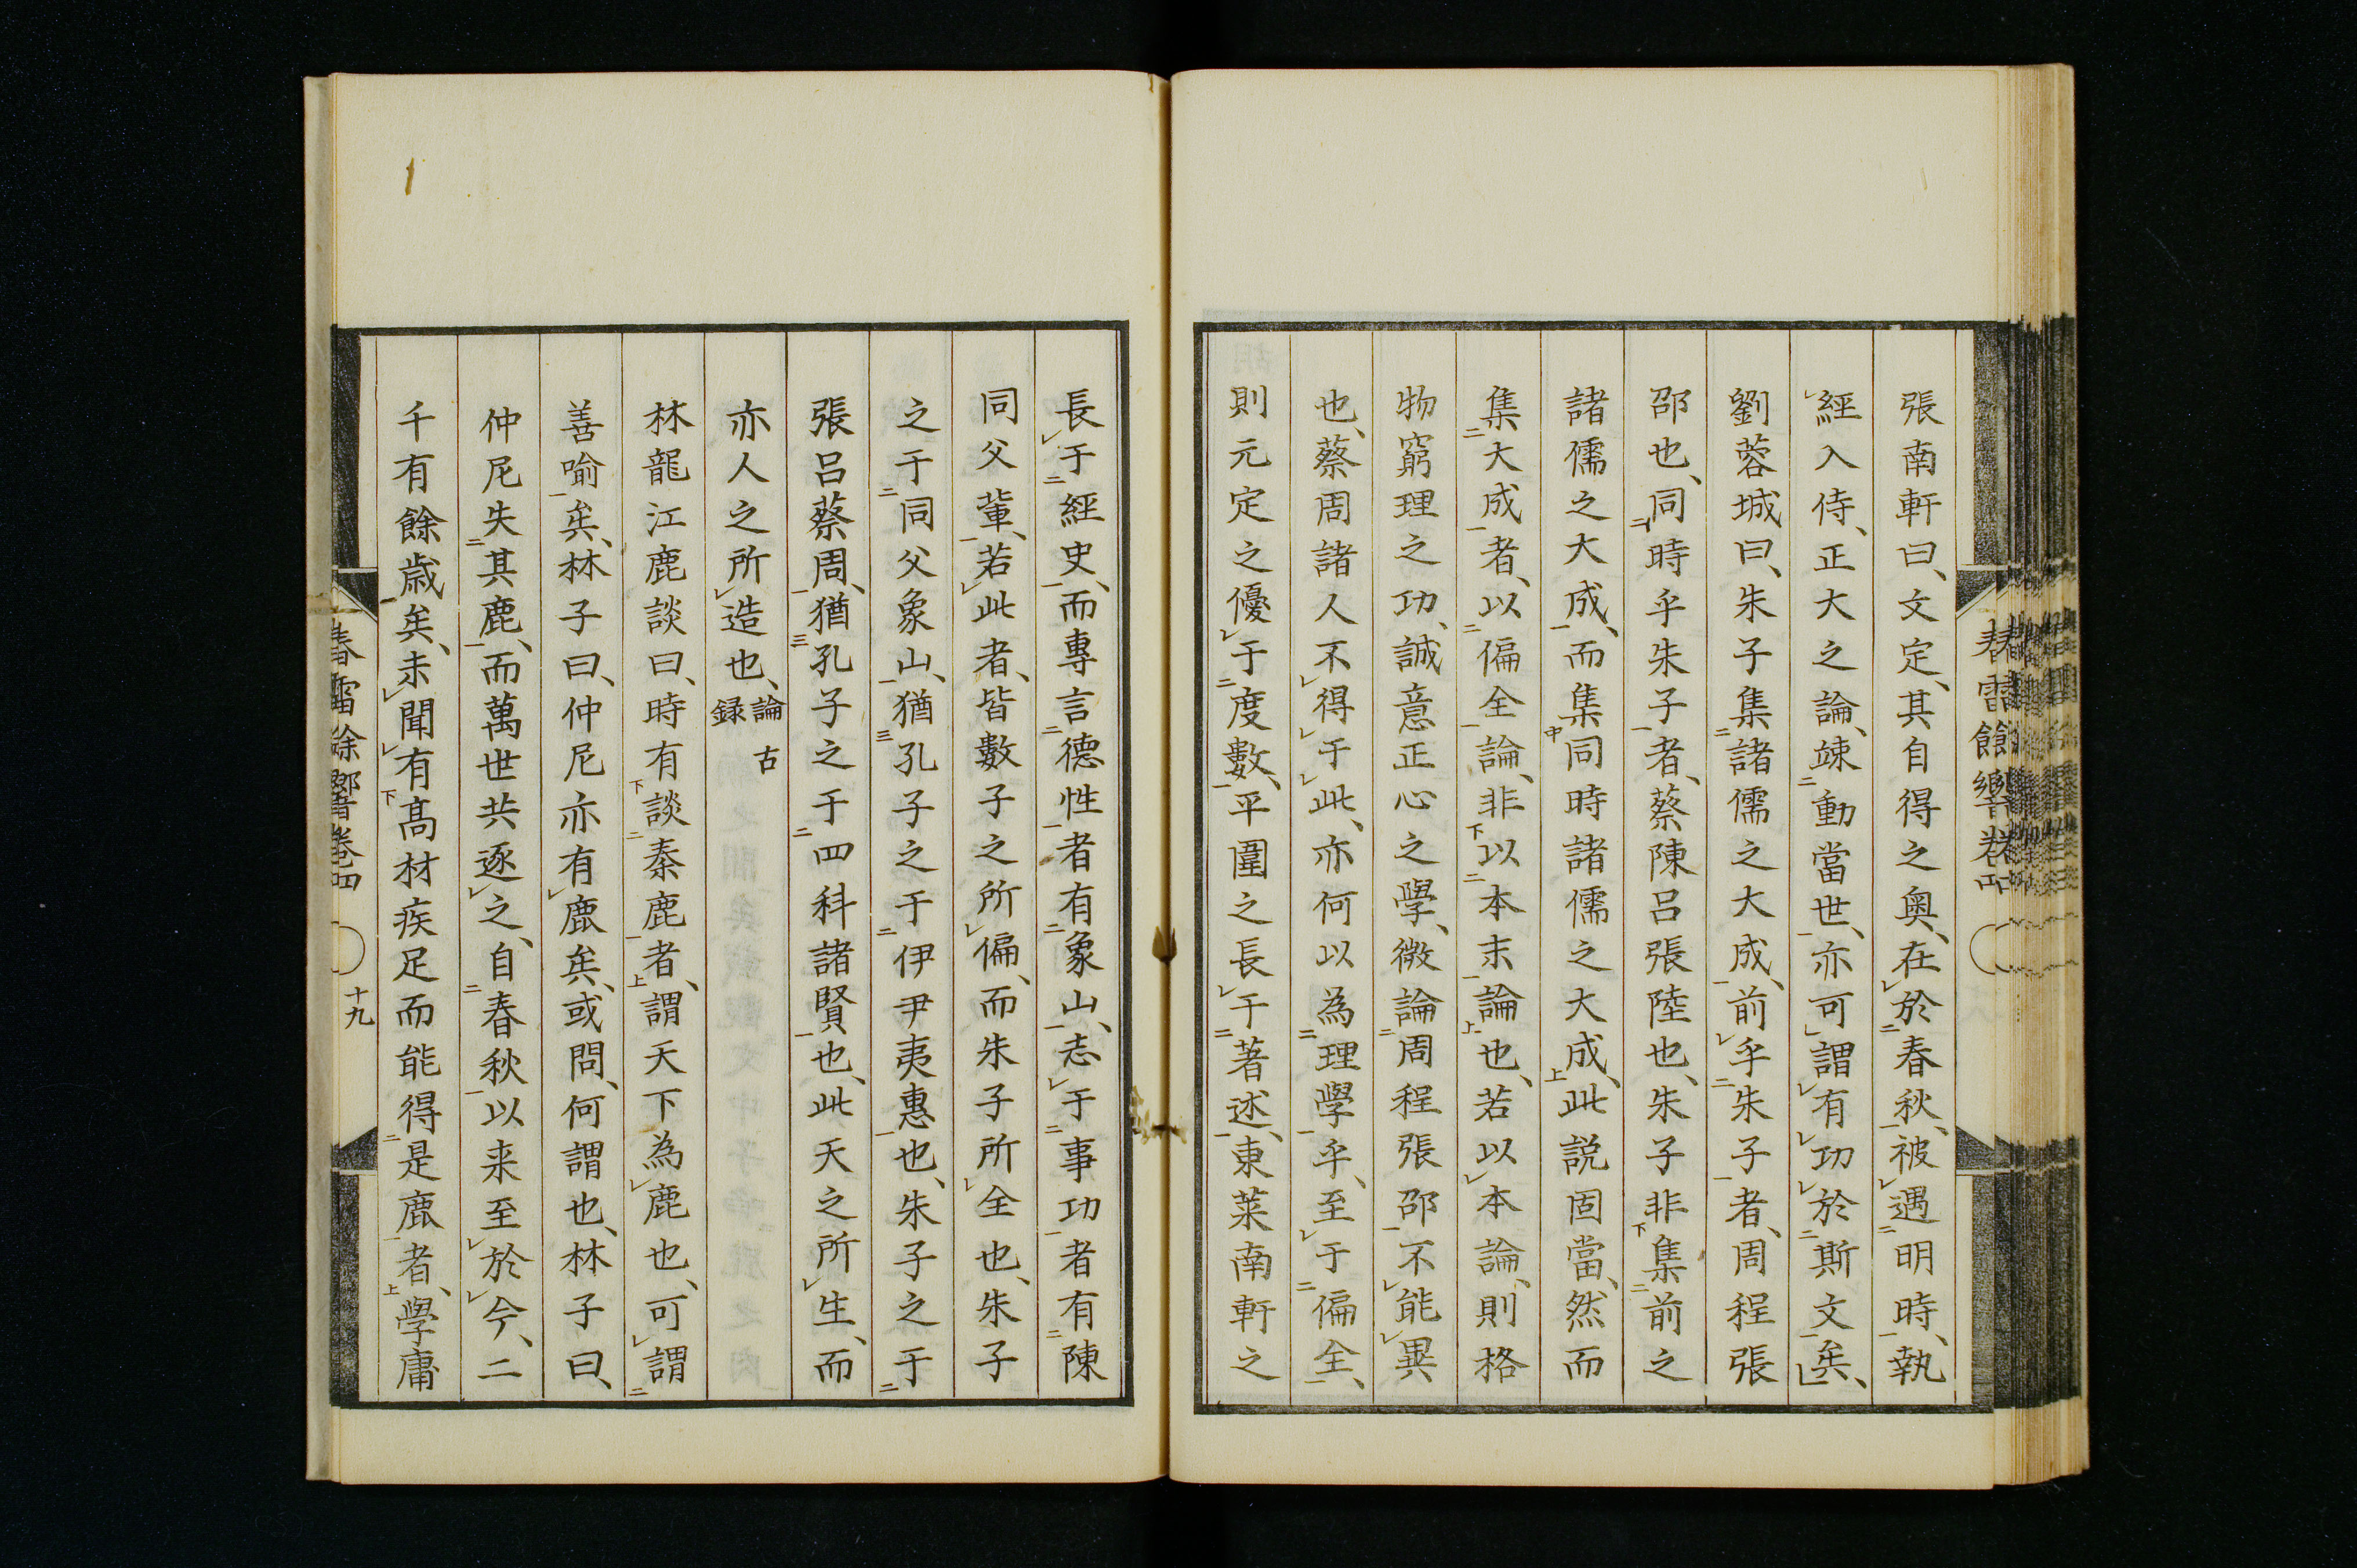 張南軒曰、文定、其自得之奧、在於春秋、被遇明時、執
經入侍、正大之論、竦動當世、亦可謂有功於斯文矣、
劉蓉城曰、朱子集諸儒之大成、前乎朱子者、周程張
邵也、同時乎朱子者、蔡陳呂張陸也、朱子非集前之
諸儒之大成、而集同時諸儒之大成、此説固當、然而
集大成者、以偏全論、非以本末論也、若以本論、則格
物窮理之功、誠意正心之學、微論周程張邵不能異
也、蔡周諸人不得于此、亦何以為理學乎、至于偏全、
則元定之優于度數、平園之長于著述、東萊南軒之
長于經史、而專言德性者有象山、志于事功者有陳
同父輩、若此者、皆數子之所偏、而朱子所全也、朱子
之于同父象山、猶孔子之于伊尹夷惠也、朱子之于
張呂蔡周、猶孔子之于四科諸賢也、此天之所生、而
亦人之所造也、論古録
林龍江鹿談曰、時有談秦鹿者、謂天下為鹿也、可謂
善喻矣、林子曰、仲尼亦有鹿矣、或問、何謂也、林子曰、
仲尼失其鹿、而萬世共逐之、自春秋以来至於今、二
千有餘歳矣、未聞有高材疾足而能得是鹿者、學庸
春雷餘響卷四
十九